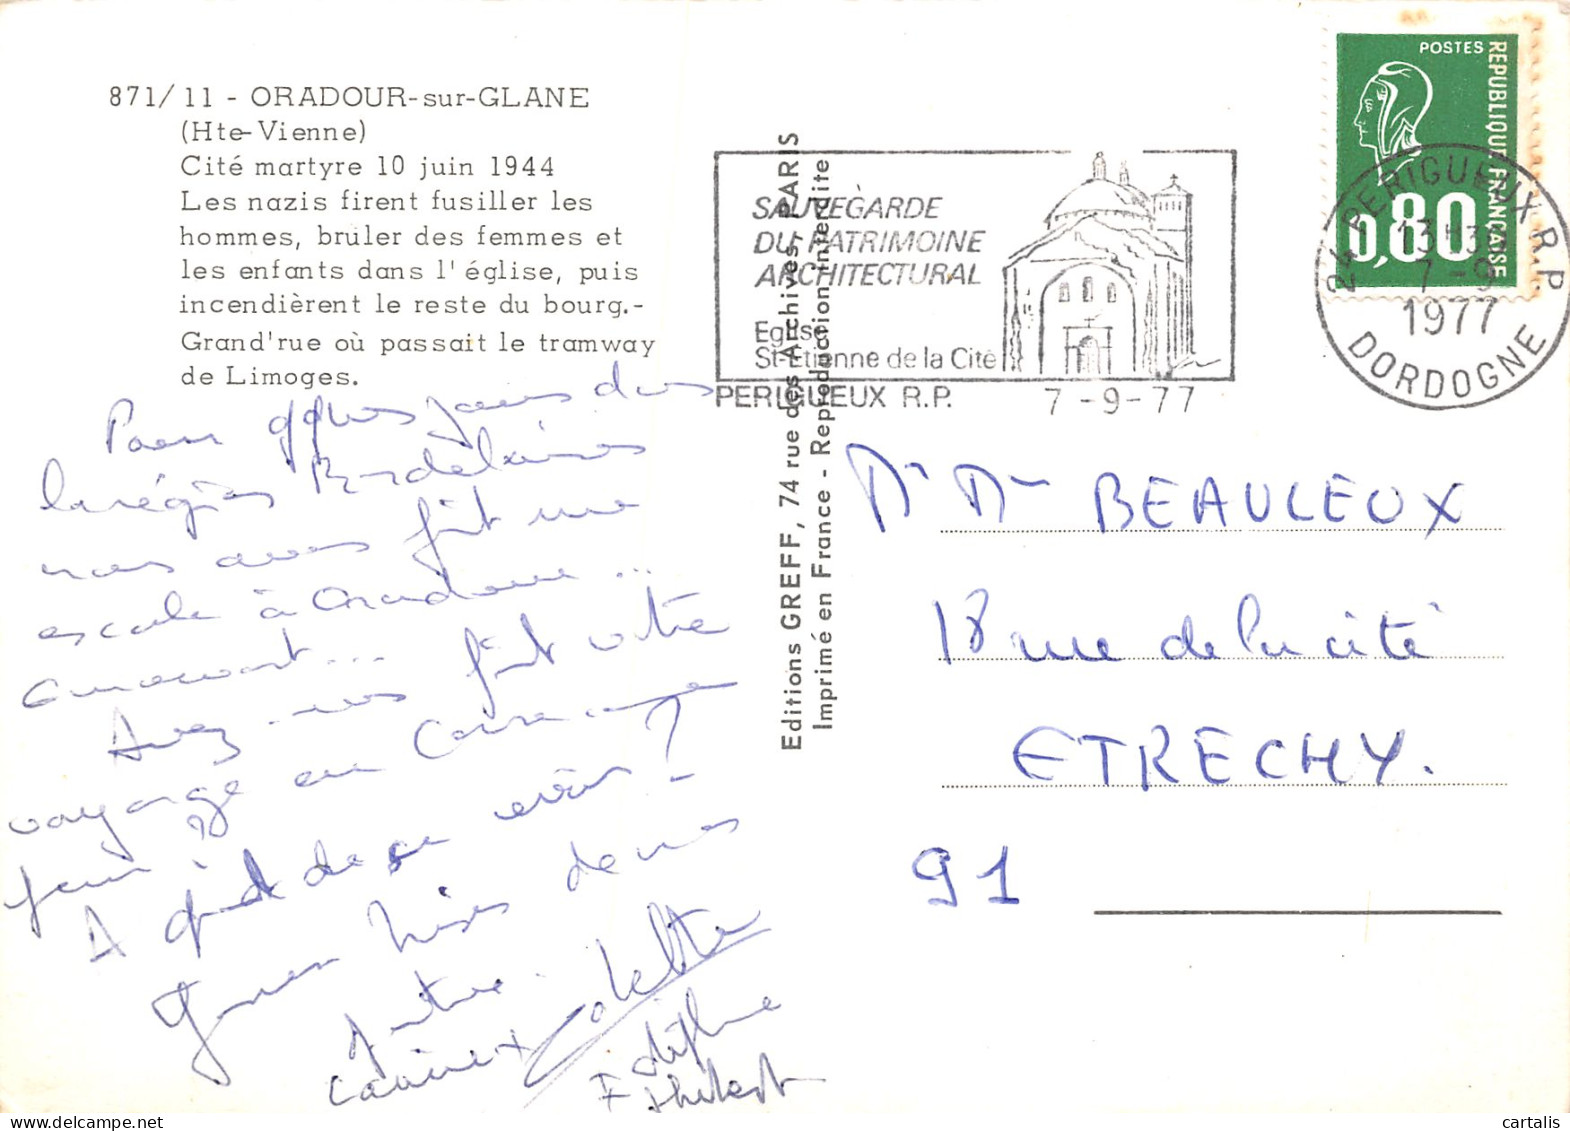 871/11 - ORADOUR-sur-GLANE
(Hte-Vienne)
Cité martyre 10 juin 1944
Les nazis firent fusiller les
hommes, brûler des femmes et
les enfants dans l'église, puis
incendièrent le reste du bourg.-
Grand'rue où passait le tramway
de Limoges.
Pour qques jours dans
la région Bordelaise
nous avons fait une
escale à Oradour...
émouvant...
Avez-vous fait votre
voyage en
?
A de se voir
Grosses bises de nous
quatre.
Colette
Stéphane
Editions GREFF, 74 rue des Archives, PARIS
Imprimé en France - Reproduction interdite
SAUVEGARDE
DU PATRIMOINE
ARCHITECTURAL
Eglise
St-Etienne de la Cité
PERIGUEUX R.P. 7-9-77
POSTES
REPUBLIQUE FRANÇAISE
0,80
24 PERIGUEUX R.P.
13H30
7-9
1977
DORDOGNE
Mr Mme BEAULEUX
18 rue de la cité
ETRECHY.
91
cartalis